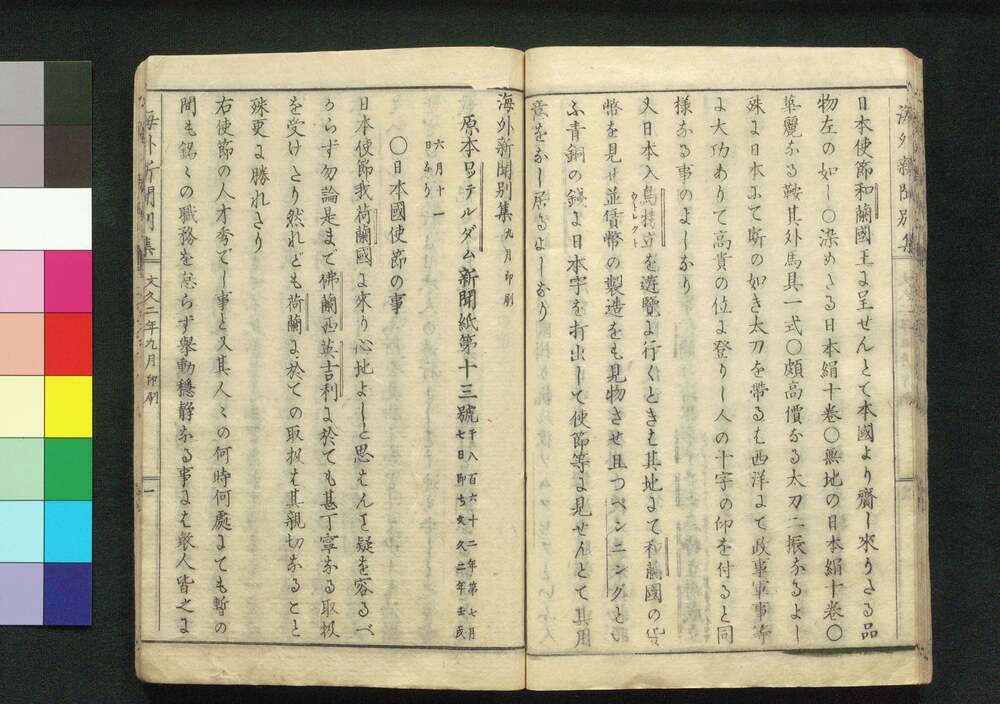 海外新聞別集
日本使節和蘭國王に呈せんとて本國より齎し來りたる品
物左の如し〇染めたる日本絹十卷〇無地の日本絹十卷〇
華麗なる鞍其外馬具一式〇頗高價なる太刀二振なるよし
殊に日本にて斯の如き太刀を帶るは西洋にて政事軍事等
に大功ありて高貴の位に登りし人の十字の印を付ると同
様なる事のよしなり
又日本人烏特立を遊覽に行くときは其地にて和蘭國の貨
ウトレクト
幣を見せ並貨幣の製造をも見物させ且つペンニングとい
ふ青銅の錢に日本字を打出して使節等に見せんとて其用
意をなし居るよしなり
海外新聞別集 九月印刷
原本ロッテルダム新聞紙第十三號 千八百六十二年第七月
七日即ち文久二年壬戌
六月十一
日なり
〇日本國使節の事
日本使節我荷蘭國に來り心地よしと思はんこと疑を容るべ
からず勿論是まで佛蘭西英吉利に於ても甚丁寧なる取扱
を受けたり然れども荷蘭に於ての取扱は其親切なること
殊更に勝れたり
右使節の人才秀でし事と又其人々の何時何處にても暫の
間も銘々の職務を怠らず擧動穩靜なる事には衆人皆之に
海外新聞別集 文久二年九月印刷 一